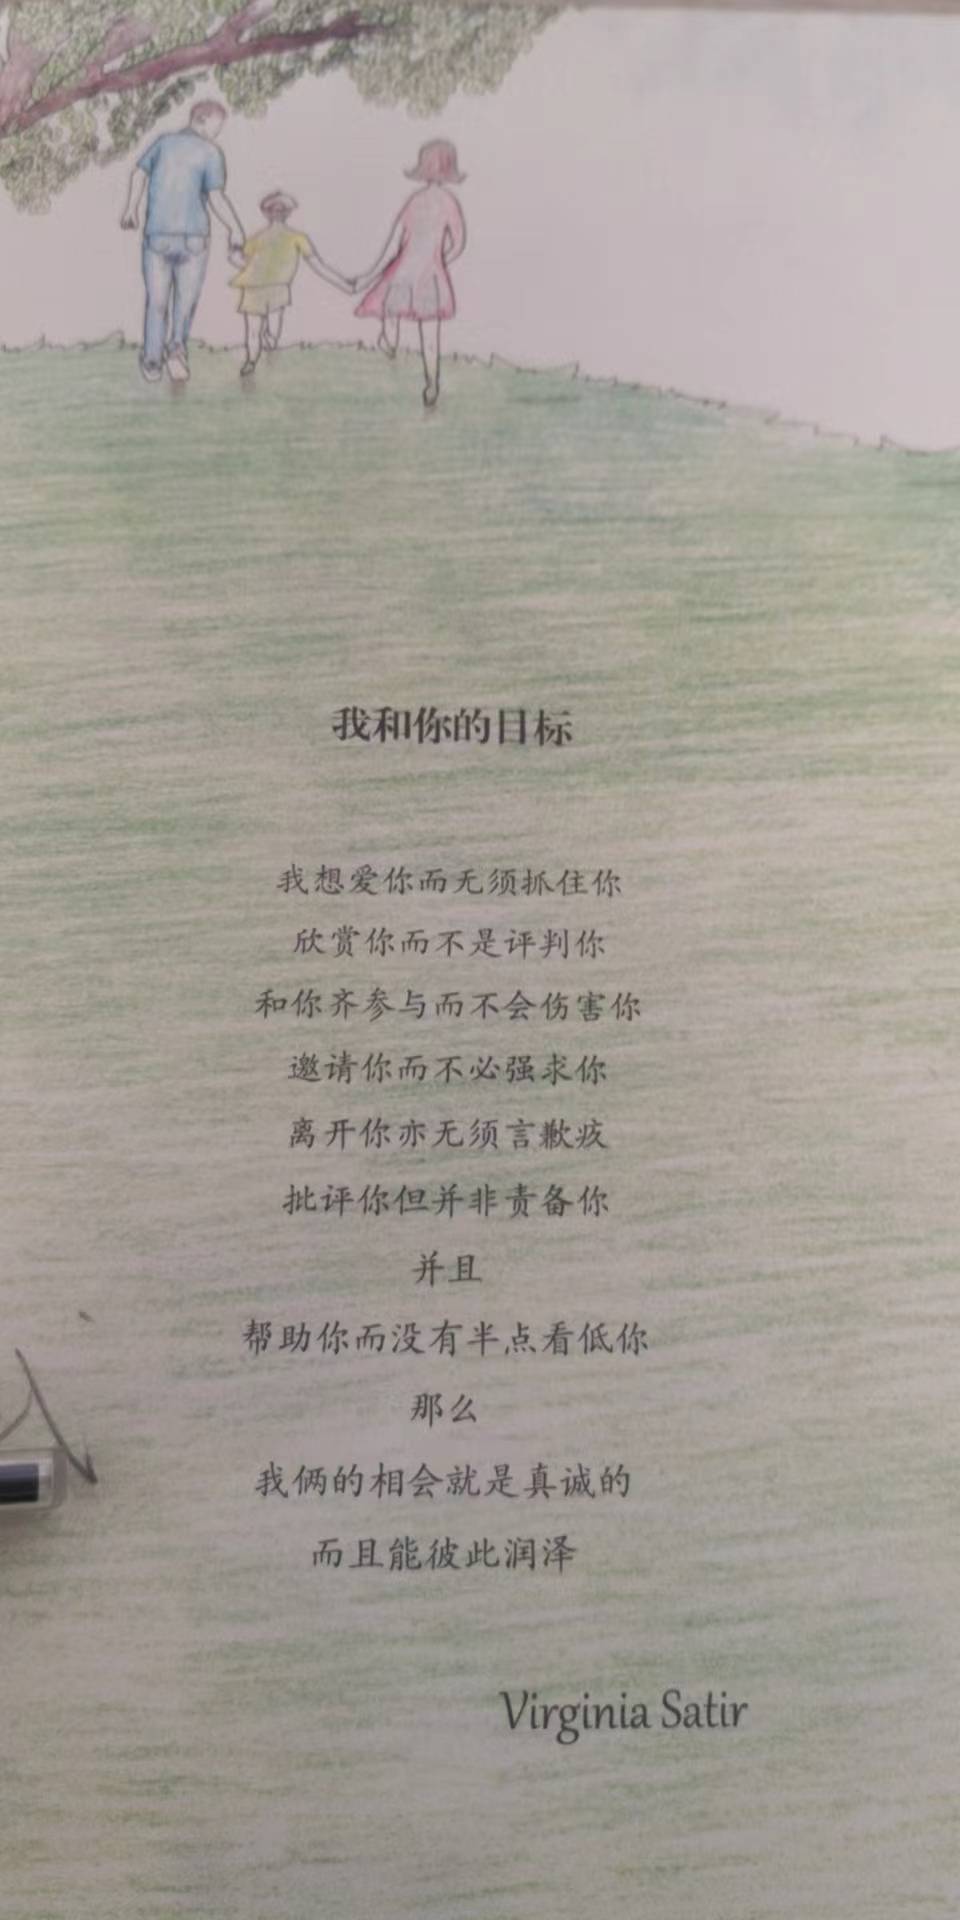 我和你的目标
我想爱你而无须抓住你
欣赏你而不是评判你
和你齐参与而不会伤害你
邀请你而不必强求你
离开你亦无须言歉疚
批评你但并非责备你
并且
帮助你而没有半点看低你
那么
我俩的相会就是真诚的
而且能彼此润泽
Virginia Satir